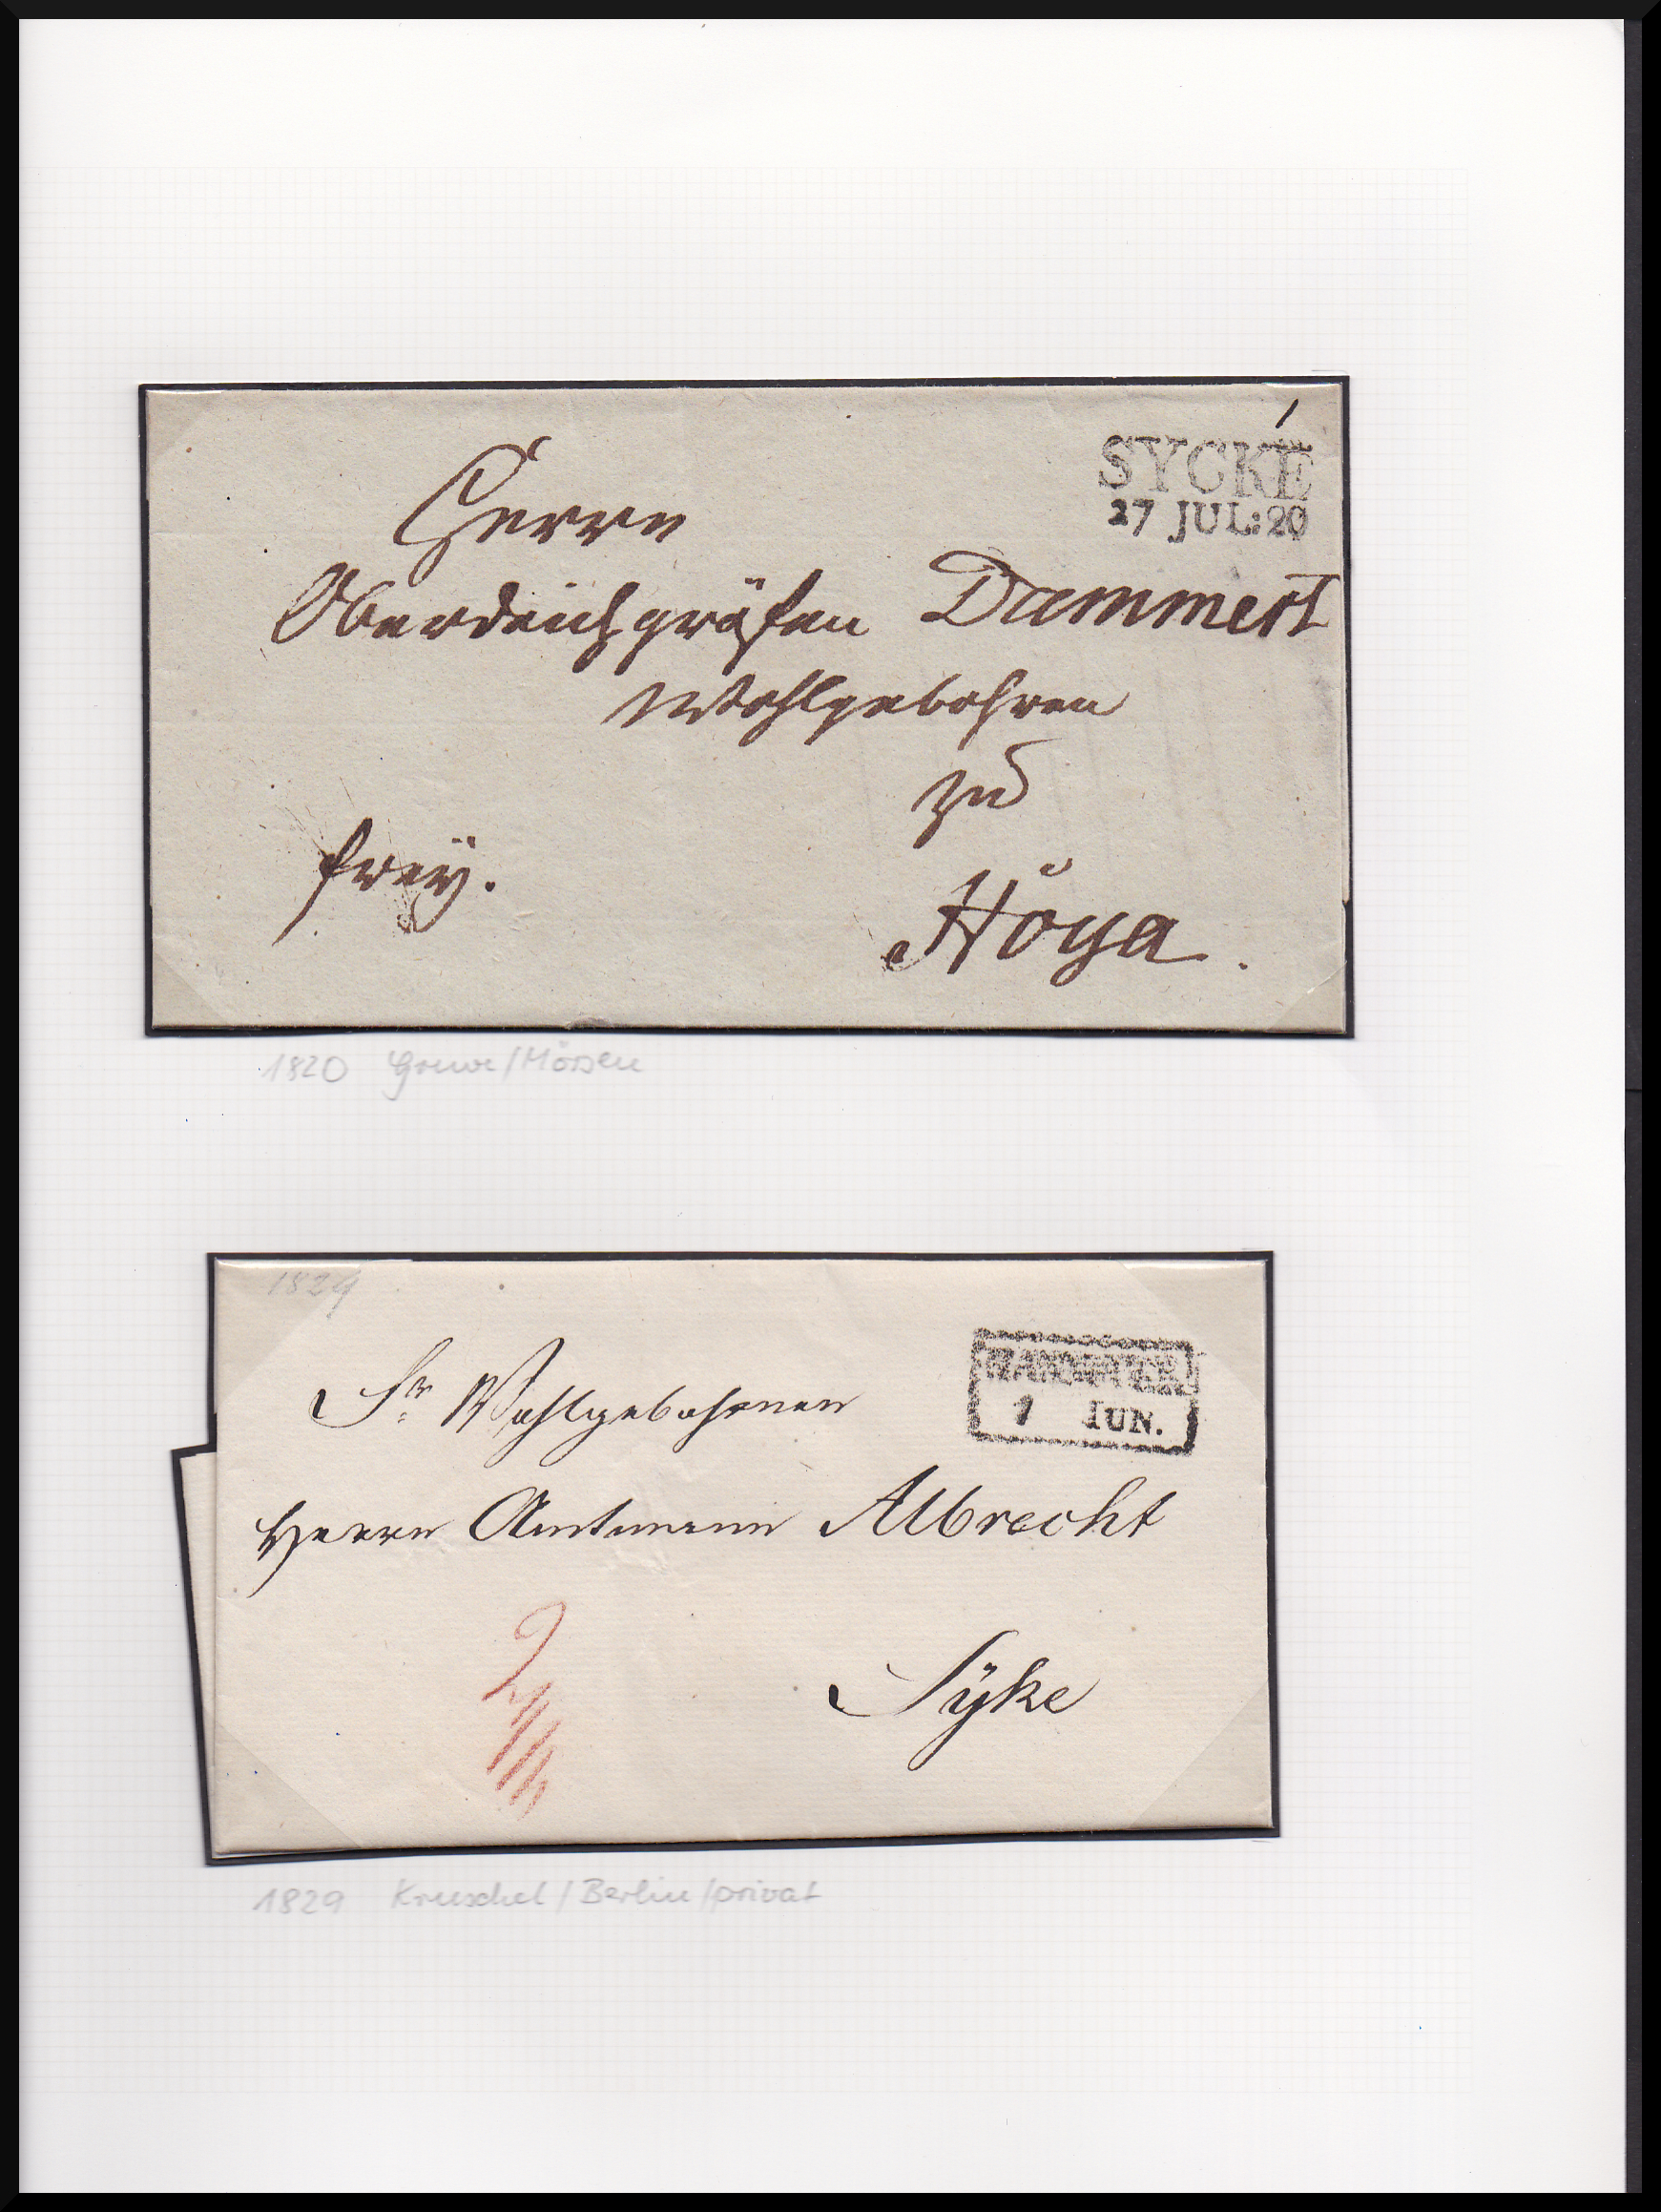 SYCKE
27 JUL: 20
Herrn
Oberdeichgräfen Dammert
Wohlgebohren
zu
frey.
Hoya.
1820 Greve/Mörsen
1829
Sr. Wohlgebohrnen
HANNOVER
1 IUN.
Herrn Amtmann Albrecht
Sÿke
1829 Kruschel/Berlin/privat